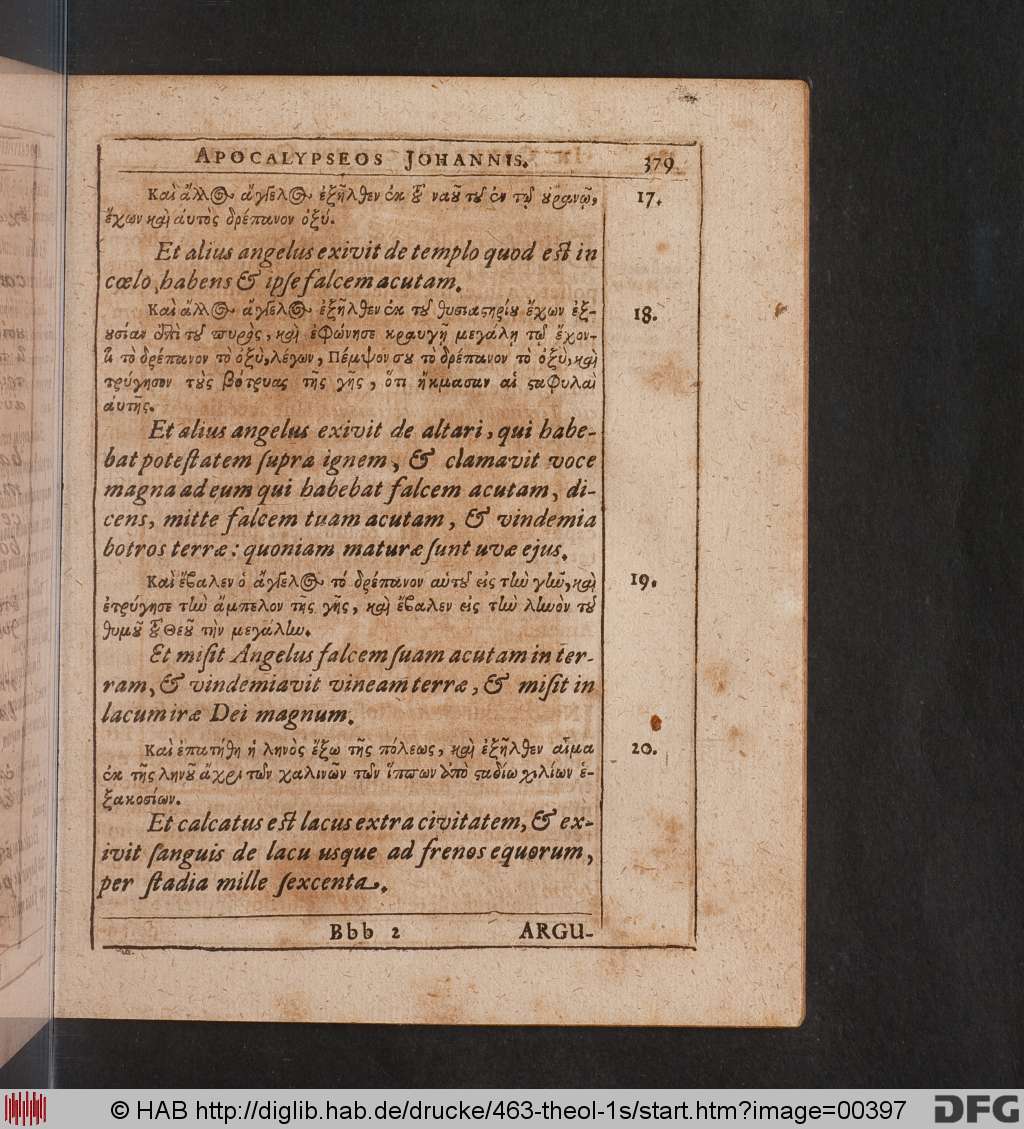 APOCALYPSEOS JOHANNIS. 379
Καὶ ἄλλος ἄγγελος ἐξῆλθεν ἐκ τοῦ ναοῦ τοῦ ἐν τῷ οὐρανῷ, 17.
ἔχων καὶ αὐτὸς δρέπανον ὀξύ.
Et alius angelus exivit de templo quod est in
cœlo, habens & ipſe falcem acutam.
Καὶ ἄλλος ἄγγελος ἐξῆλθεν ἐκ τοῦ θυσιαστηρίου ἔχων ἐξ- 18.
ουσίαν ἐπὶ τοῦ πυρὸς, καὶ ἐφώνησε κραυγῇ μεγάλῃ τῷ ἔχον-
τι τὸ δρέπανον τὸ ὀξὺ, λέγων, Πέμψον σου τὸ δρέπανον τὸ ὀξὺ, καὶ
τρύγησον τοὺς βότρυας τῆς γῆς, ὅτι ἤκμασαν αἱ σταφυλαὶ
αὐτῆς.
Et alius angelus exivit de altari, qui habe-
bat poteſtatem ſupra ignem, & clamavit voce
magna ad eum qui habebat falcem acutam, di-
cens, mitte falcem tuam acutam, & vindemia
botros terræ: quoniam maturæ ſunt uvæ ejus.
Καὶ ἔβαλεν ὁ ἄγγελος τὸ δρέπανον αὑτοῦ εἰς τὴν γῆν, καὶ 19.
ἐτρύγησε τὴν ἄμπελον τῆς γῆς, καὶ ἔβαλεν εἰς τὴν ληνὸν τοῦ
θυμοῦ τοῦ Θεοῦ τὴν μεγάλην.
Et miſit Angelus falcem ſuam acutam in ter-
ram, & vindemiavit vineam terræ, & miſit in
lacum iræ Dei magnum.
Καὶ ἐπατήθη ἡ ληνὸς ἔξω τῆς πόλεως, καὶ ἐξῆλθεν αἷμα 20.
ἐκ τῆς ληνοῦ ἄχρι τῶν χαλινῶν τῶν ἵππων ἀπὸ σταδίων χιλίων ἑ-
ξακοσίων.
Et calcatus est lacus extra civitatem, & ex-
ivit ſanguis de lacu usque ad frenos equorum,
per ſtadia mille ſexcenta.
Bbb 2 ARGU-
© HAB http://diglib.hab.de/drucke/463-theol-1s/start.htm?image=00397 DFG